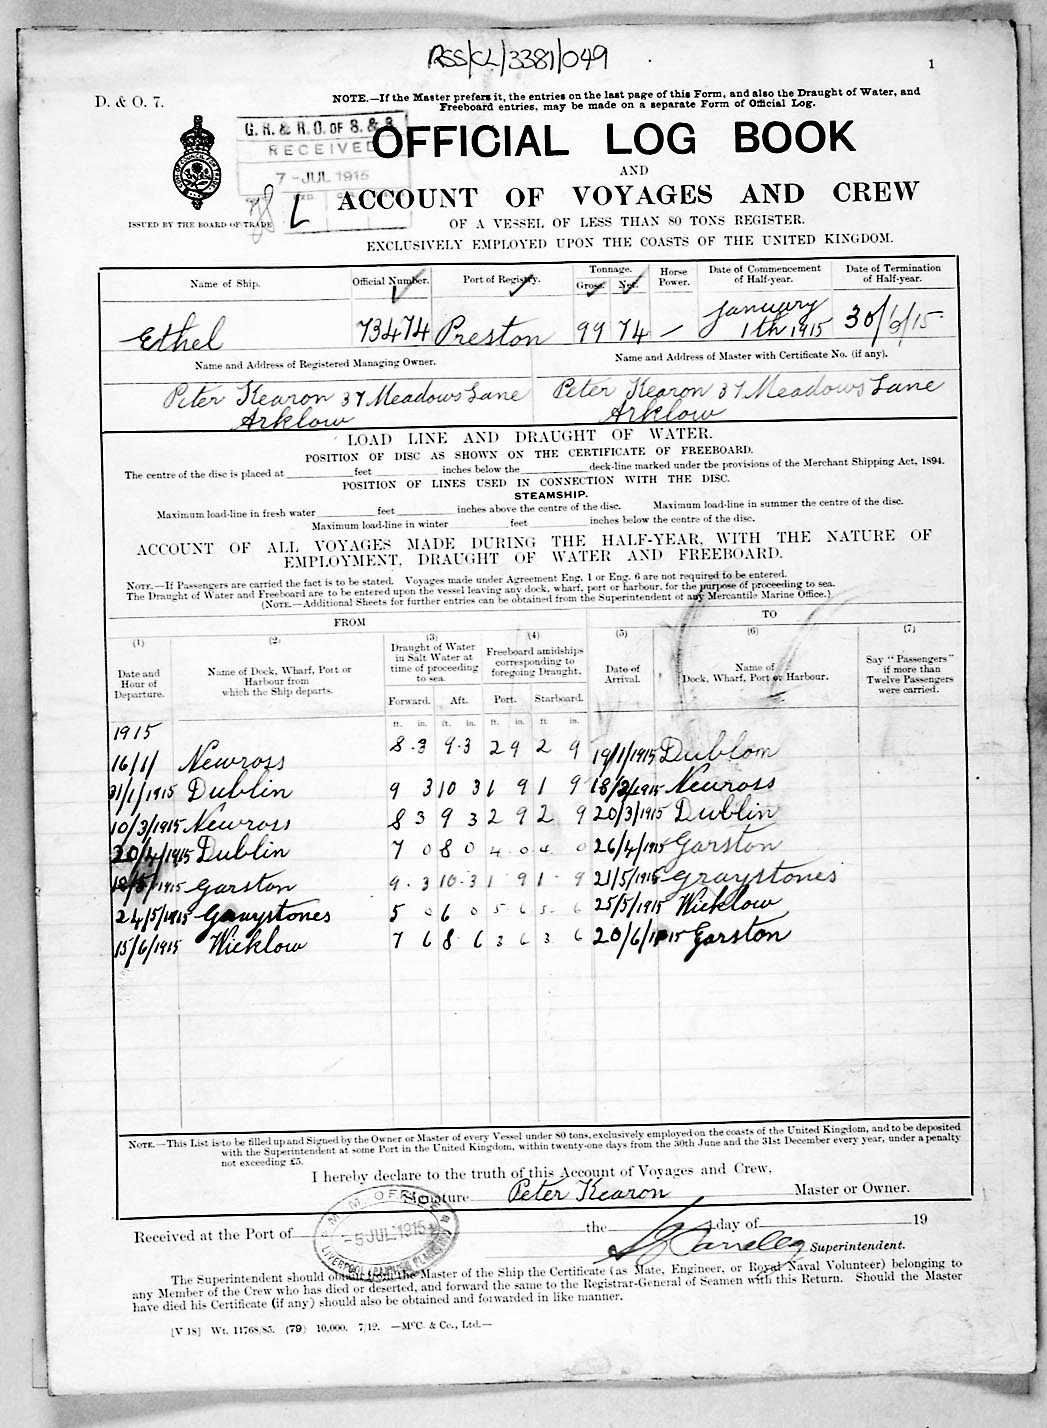 RSS/CL/3381/049
1
D. & O. 7.
NOTE.—If the Master prefers it, the entries on the last page of this Form, and also the Draught of Water, and
Freeboard entries, may be made on a separate Form of Official Log.
G. R. & R. O. OF S. & S.
RECEIVED
7 - JUL 1915
L
OFFICIAL LOG BOOK
AND
ACCOUNT OF VOYAGES AND CREW
ISSUED BY THE BOARD OF TRADE
OF A VESSEL OF LESS THAN 80 TONS REGISTER.
EXCLUSIVELY EMPLOYED UPON THE COASTS OF THE UNITED KINGDOM.
Name of Ship. Official Number. Port of Registry. Tonnage. Gross. Net. Horse Power. Date of Commencement of Half-year. Date of Termination of Half-year.
Ethel 73474 Preston 99 74 — January 1th 1915 30/6/15
Name and Address of Registered Managing Owner. Name and Address of Master with Certificate No. (if any).
Peter Kearon 37 Meadows Lane Peter Kearon 37 Meadows Lane
Arklow Arklow
LOAD LINE AND DRAUGHT OF WATER.
POSITION OF DISC AS SHOWN ON THE CERTIFICATE OF FREEBOARD.
The centre of the disc is placed at feet inches below the deck-line marked under the provisions of the Merchant Shipping Act, 1894.
POSITION OF LINES USED IN CONNECTION WITH THE DISC.
STEAMSHIP.
Maximum load-line in fresh water feet inches above the centre of the disc. Maximum load-line in summer the centre of the disc.
Maximum load-line in winter feet inches below the centre of the disc.
ACCOUNT OF ALL VOYAGES MADE DURING THE HALF-YEAR, WITH THE NATURE OF
EMPLOYMENT, DRAUGHT OF WATER AND FREEBOARD.
NOTE.—If Passengers are carried the fact is to be stated. Voyages made under Agreement Eng. 1 or Eng. 6 are not required to be entered.
The Draught of Water and Freeboard are to be entered upon the vessel leaving any dock, wharf, port or harbour, for the purpose of proceeding to sea.
(NOTE.—Additional Sheets for further entries can be obtained from the Superintendent of any Mercantile Marine Office.)
FROM TO
(1) (2) (3) (4) (5) (6) (7)
Date and Hour of Departure. Name of Dock, Wharf, Port or Harbour from which the Ship departs. Draught of Water in Salt Water at time of proceeding to sea. Freeboard amidships corresponding to foregoing Draught. Date of Arrival. Name of Dock, Wharf, Port or Harbour. Say "Passengers" if more than Twelve Passengers were carried.
Forward. Aft. Port. Starboard.
ft. in. ft. in. ft. in. ft. in.
1915
16/1/ Newross 8.3 9.3 2 9 2 9 19/1/1915 Dublom
31/1/1915 Dublin 9 3 10 3 1 9 1 9 18/2/1915 Newross
10/3/1915 Newross 8 3 9 3 2 9 2 9 20/3/1915 Dublin
20/4/1915 Dublin 7 0 8 0 4 0 4 0 26/4/1915 Garston
18/5/1915 Garston 9.3 10.3 1 9 1 9 21/5/1915 Graystones
24/5/1915 Graystones 5 0 6 0 5 6 5 6 25/5/1915 Wicklow
15/6/1915 Wicklow 7 6 8 6 3 6 3 6 20/6/1915 Garston
NOTE.—This List is to be filled up and Signed by the Owner or Master of every Vessel under 80 tons, exclusively employed on the coasts of the United Kingdom, and to be deposited
with the Superintendent at some Port in the United Kingdom, within twenty-one days from the 30th June and the 31st December every year, under a penalty
not exceeding £5.
I hereby declare to the truth of this Account of Voyages and Crew,
Signature Peter Kearon Master or Owner.
M. M. OFFICE
-5 JUL 1915
LIVERPOOL
Received at the Port of the day of 19
Superintendent.
The Superintendent should obtain from the Master of the Ship the Certificate (as Mate, Engineer, or Royal Naval Volunteer) belonging to
any Member of the Crew who has died or deserted, and forward the same to the Registrar-General of Seamen with this Return. Should the Master
have died his Certificate (if any) should also be obtained and forwarded in like manner.
[V 18] Wt. 11768/85. (79) 10,000. 7/12. —McC. & Co., Ltd.—